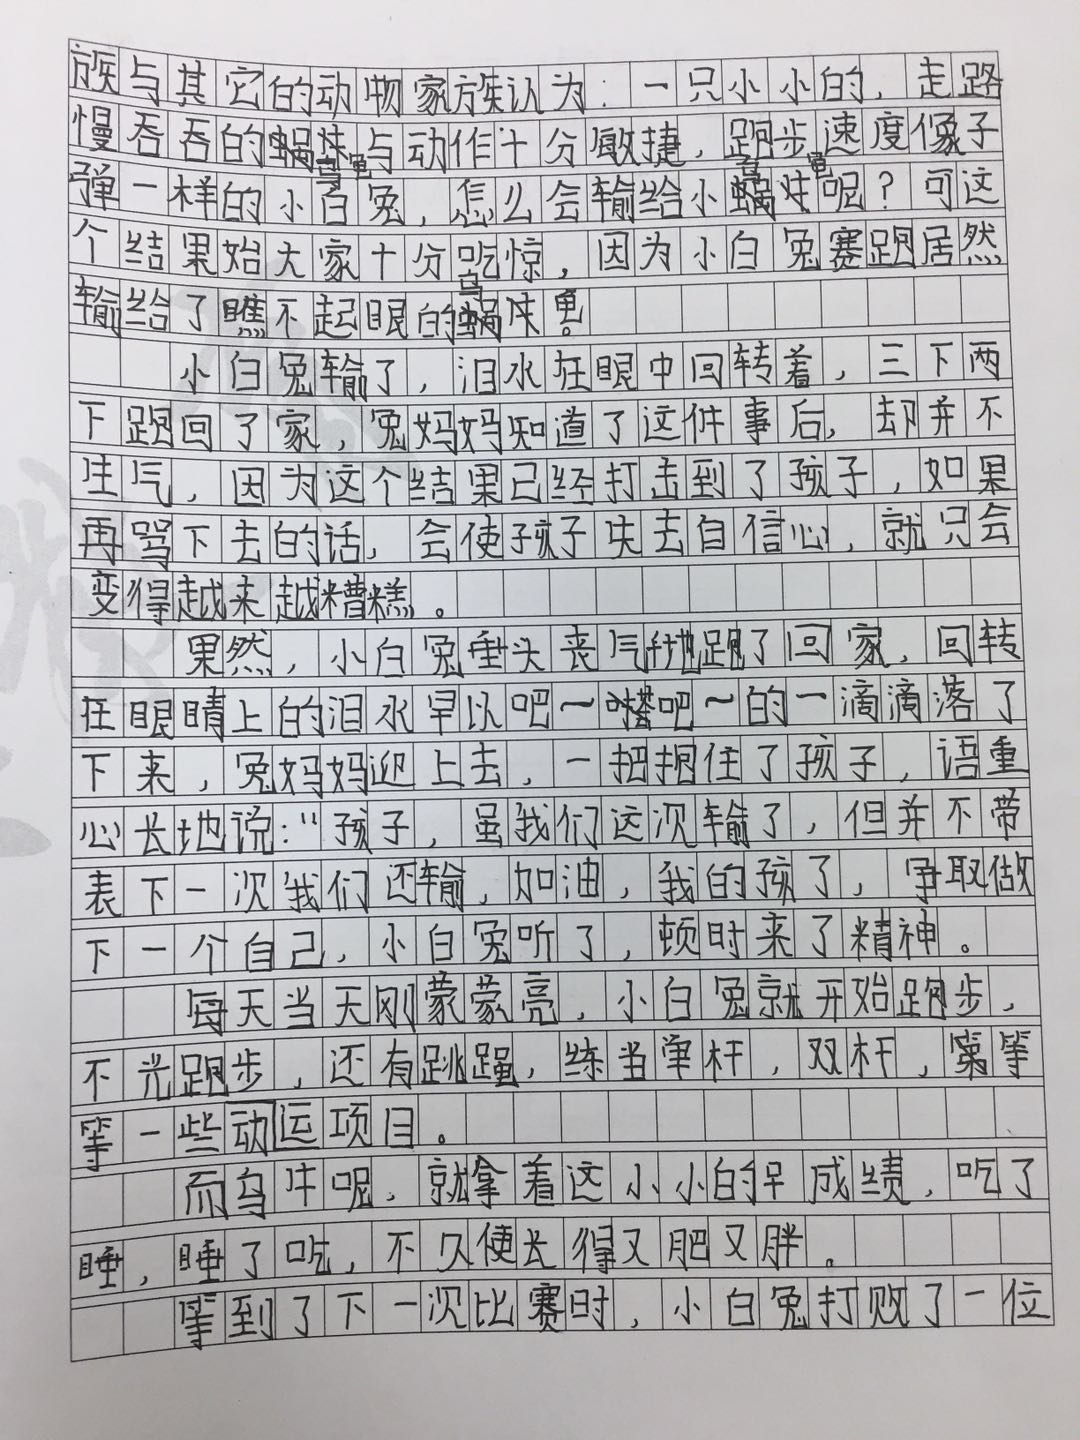 族与其它的动物家族认为:一只小小的,走路
慢吞吞的蜗牛乌龟与动作十分敏捷,跑步速度像子
弹一样的小白兔,怎么会输给小蜗牛乌龟呢?可这
个结果始大家十分吃惊,因为小白兔赛跑居然
输给了瞧不起眼的蜗牛乌龟。
小白兔输了,泪水在眼中回转着,三下两
下跑回了家,兔妈妈知道了这件事后,却并不
生气,因为这个结果已经打击到了孩子,如果
再骂下去的话,会使孩子失去自信心,就只会
变得越来越糟糕。
果然,小白兔垂头丧气地跑了回家,回转
在眼睛上的泪水早以吧一嗒吧一的一滴滴落了
下来,兔妈妈迎上去,一把抱住了孩子,语重
心长地说:“孩子,虽我们这次输了,但并不带
表下一次我们还输,加油,我的孩了,争取做
下一个自己,小白兔听了,顿时来了精神。
每天当天刚蒙蒙亮,小白兔就开始跑步,
不光跑步,还有跳绳,练当单杆,双杆,第等
等一些动运项目。
而乌牛呢,就拿着这小小的成绩,吃了
睡,睡了吃,不久使长得又肥又胖。
等到了下一次比赛时,小白兔打败了一位